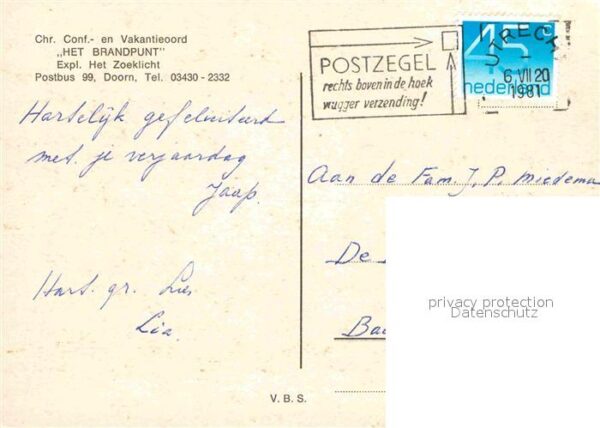 Chr. Conf.- en Vakantieoord
„HET BRANDPUNT"
Expl. Het Zoeklicht
Postbus 99, Doorn, Tel. 03430 - 2332
POSTZEGEL
rechts boven in de hoek
vlugger verzending!
45 c
nederland
UTRECH
6 VII 20
1981
Hartelijk gefeliciteerd
met je verjaardag
Jaap.
Hart. gr. Lies
Lia.
Aan de Fam. J. P. Miedema
De
Ba
privacy protection
Datenschutz
V.B.S.